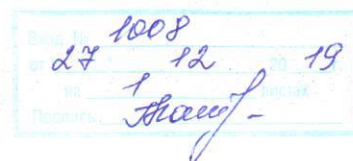 Вход. № 1008
от 27 12 20 19
на 1 листах
Подпись